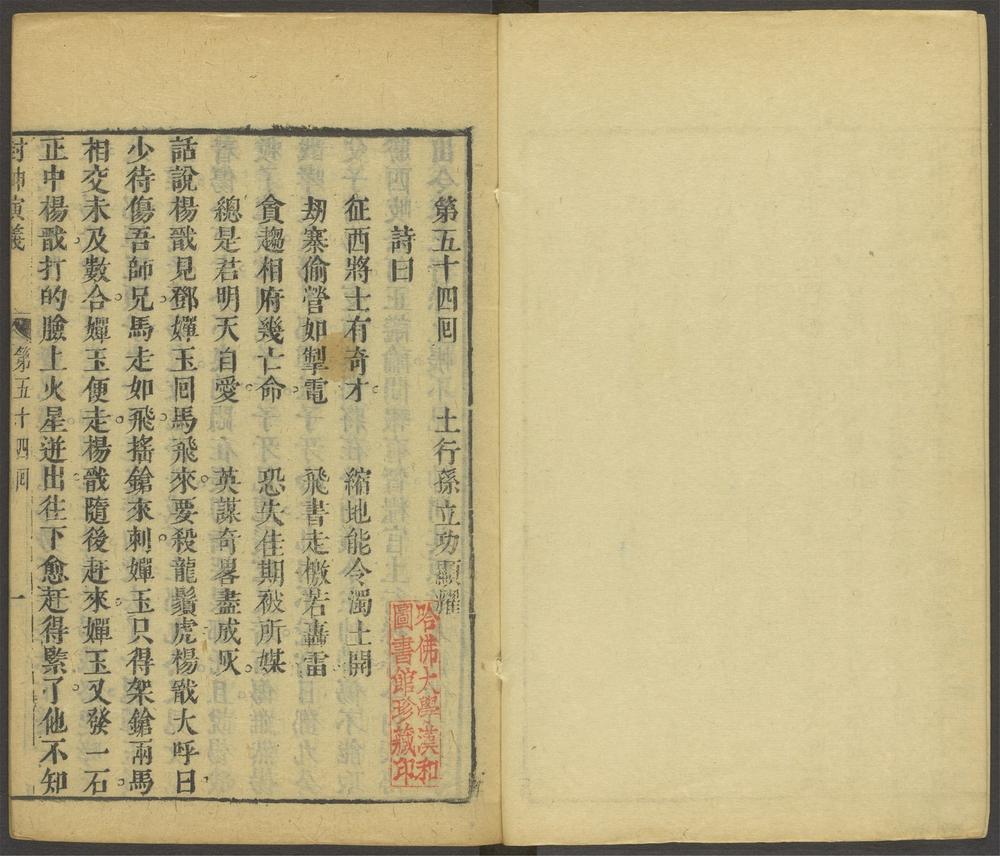 第五十四囘　土行孫立功顯耀
詩曰
征西將士有奇才。　縮地能令濁土開
刼寨偷營如掣電　飛書走檄若轟雷
貪趨相府幾亡命。　恐失佳期被所媒
總是君明天自愛。　英謀奇畧盡成灰。
話說楊戩見鄧嬋玉囘馬飛來。要殺龍鬚虎楊戩大呼曰
少待傷吾師兄。馬走如飛。搖鎗來刺。嬋玉只得架鎗兩馬
相交未及數合。嬋玉便走。楊戩隨後赶來。嬋玉又發一石。
正中楊戩打的臉上火星迸出往下愈赶得緊了。他不知
封神演義
第五十四囘
一
哈佛大學漢和
圖書館珍藏印